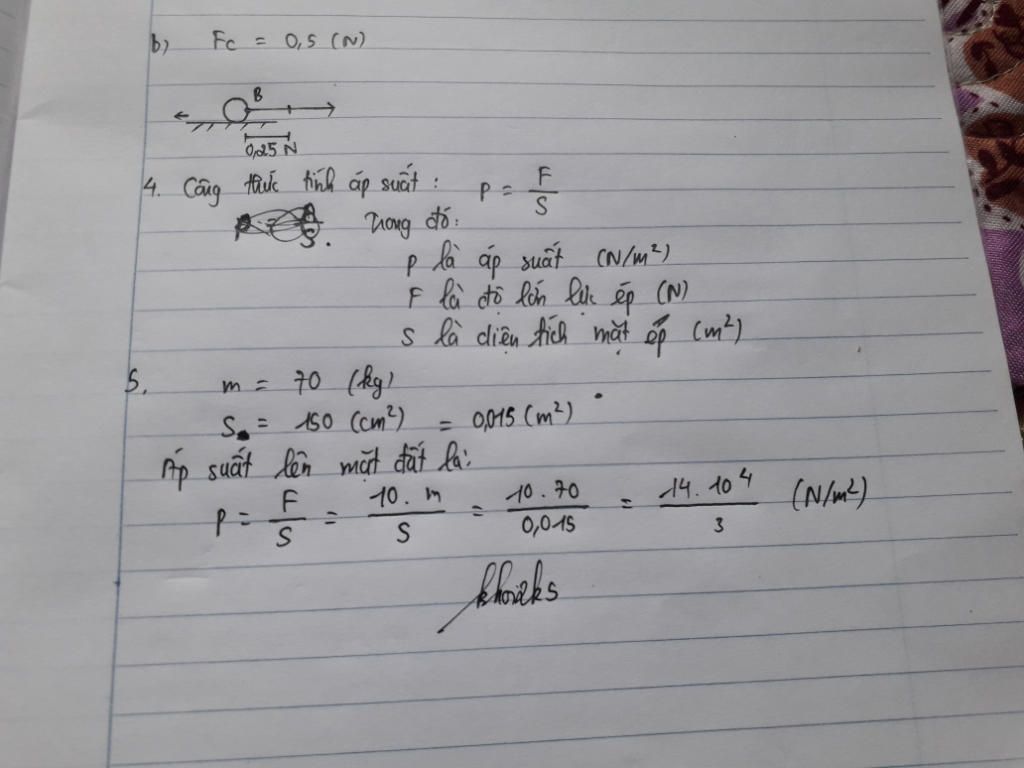 b) Fc = 0,5 (N)
B
0,25 N
4. Công thức tính áp suất: P = F/S
Trong đó:
P là áp suất (N/m²)
F là độ lớn lực ép (N)
S là diện tích mặt ép (m²)
5. m = 70 (kg)
S = 150 (cm²) = 0,015 (m²)
Áp suất lên mặt đất là:
P = F/S = 10.m/S = 10.70/0,015 = 14.10⁴/3 (N/m²)